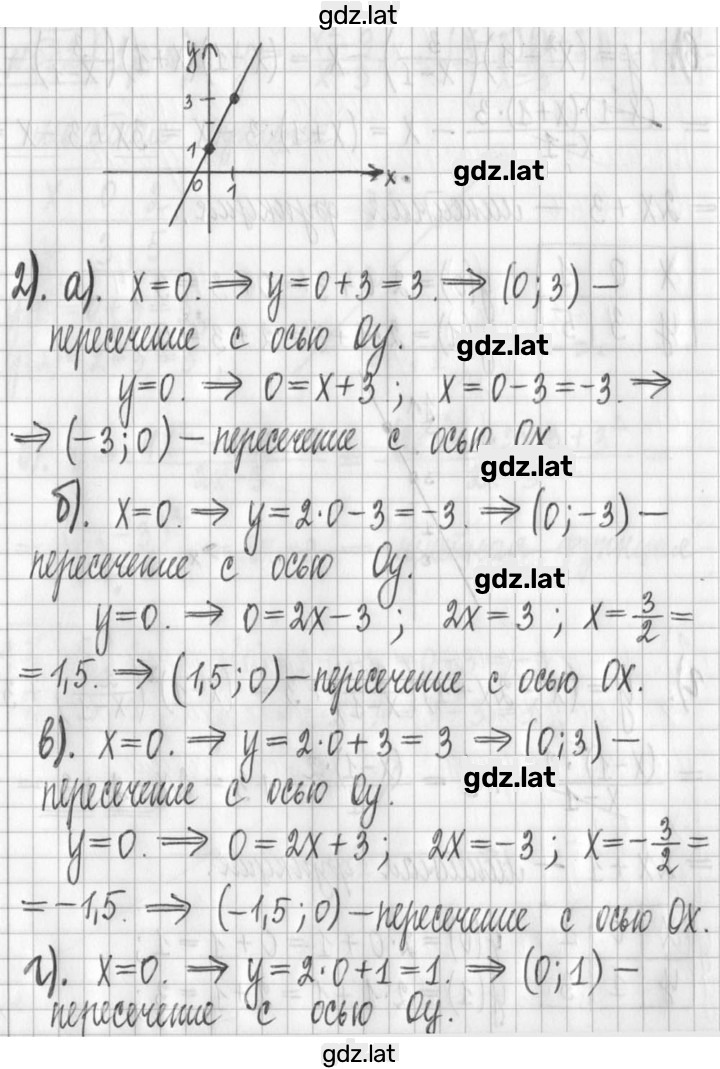 gdz.lat
y
3
1
0 1 x
gdz.lat
2). а). x=0. ⇒ y=0+3=3. ⇒ (0;3) –
пересечение с осью Oy.
gdz.lat
y=0. ⇒ 0=x+3 ; x=0-3=-3. ⇒
⇒ (-3;0) – пересечение с осью Ox
gdz.lat
б). x=0. ⇒ y=2·0-3=-3. ⇒ (0;-3) –
пересечение с осью Oy.
gdz.lat
y=0. ⇒ 0=2x-3 ; 2x=3 ; x=3/2=
=1,5. ⇒ (1,5;0) – пересечение с осью Ox.
в). x=0. ⇒ y=2·0+3=3 ⇒ (0;3) –
gdz.lat
пересечение с осью Oy.
y=0. ⇒ 0=2x+3 ; 2x=-3 ; x=-3/2=
=-1,5. ⇒ (-1,5;0) – пересечение с осью Ox.
г). x=0. ⇒ y=2·0+1=1. ⇒ (0;1) –
пересечение с осью Oy.
gdz.lat